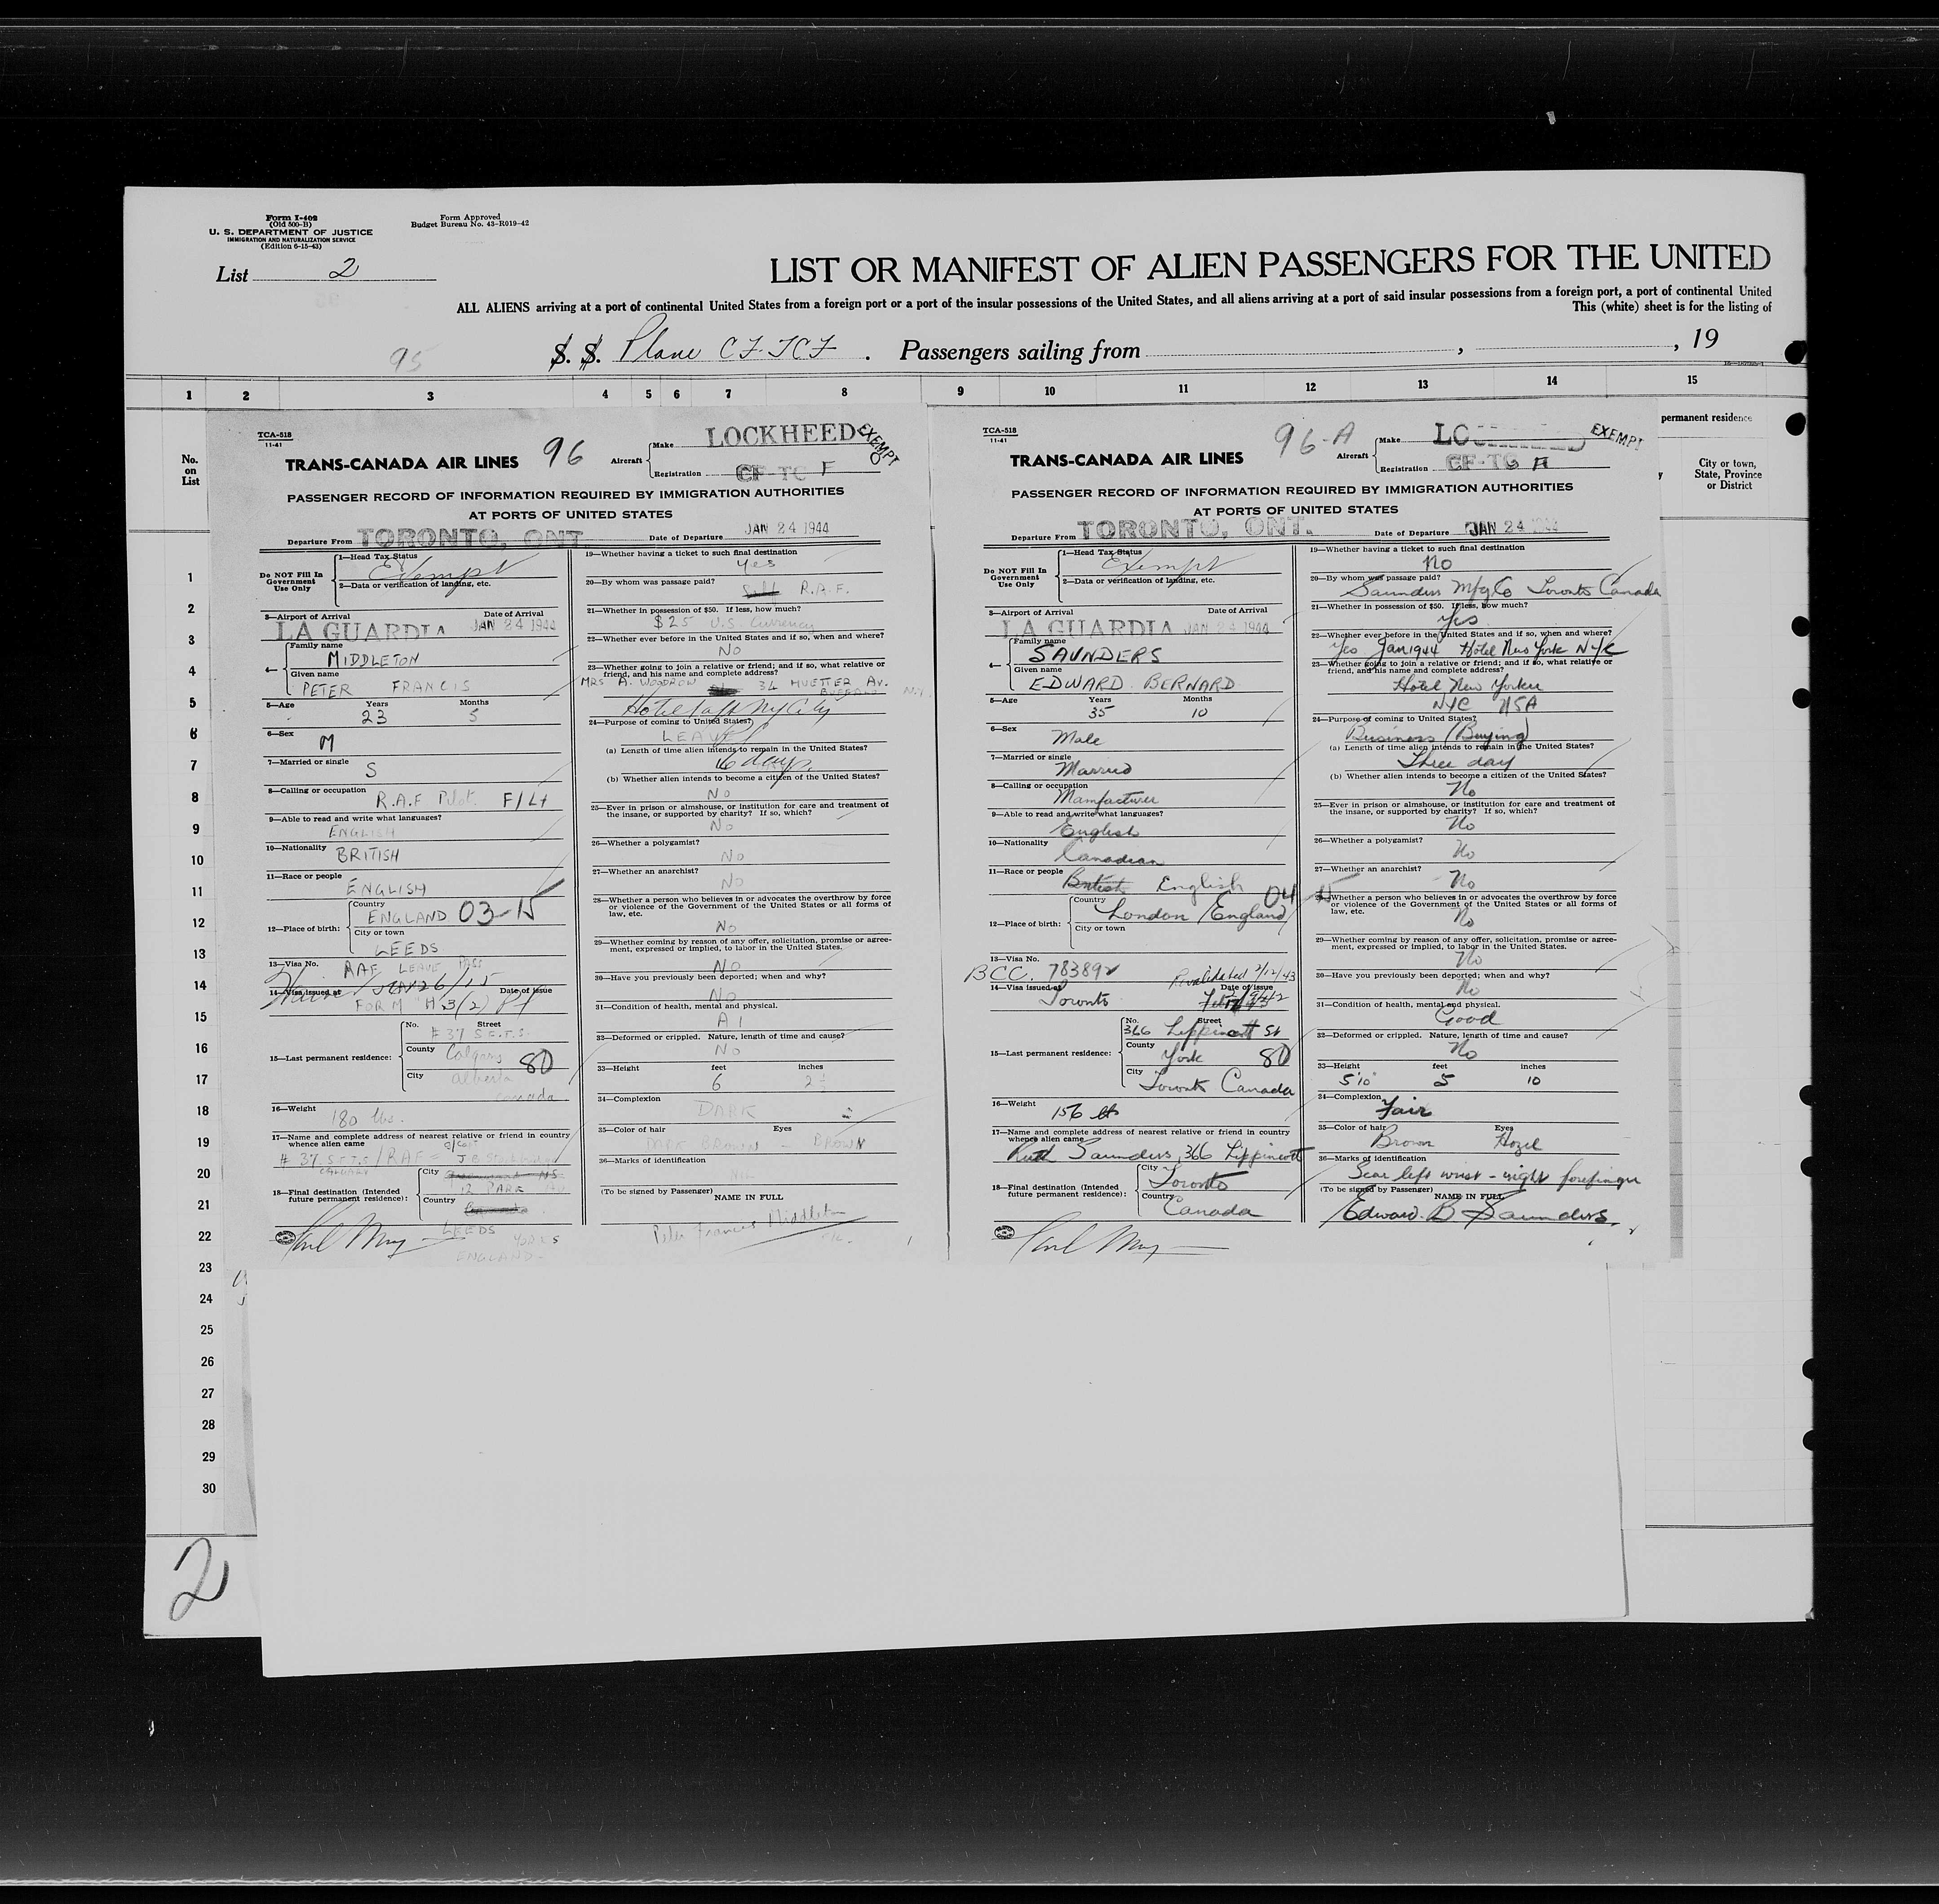 Form I-402
(Old 500-B)
U. S. DEPARTMENT OF JUSTICE
IMMIGRATION AND NATURALIZATION SERVICE
(Edition 6-15-43)
Form Approved
Budget Bureau No. 43-R019-42
List 2
LIST OR MANIFEST OF ALIEN PASSENGERS FOR THE UNITED
ALL ALIENS arriving at a port of continental United States from a foreign port or a port of the insular possessions of the United States, and all aliens arriving at a port of said insular possessions from a foreign port, a port of continental United
This (white) sheet is for the listing of
95
S. S. Plane CF-TCF . Passengers sailing from , , 19
1 2 3 4 5 6 7 8 9 10 11 12 13 14 15
No. on List
permanent residence
City or town, State, Province or District
1
2
3
4
5
6
7
8
9
10
11
12
13
14
15
16
17
18
19
20
21
22
23
24
25
26
27
28
29
30
2
TCA-518
11-41
96
TRANS-CANADA AIR LINES
Aircraft
Make LOCKHEED
EXEMPT
Registration CF-TC F
PASSENGER RECORD OF INFORMATION REQUIRED BY IMMIGRATION AUTHORITIES
AT PORTS OF UNITED STATES
Departure From TORONTO, ONT. Date of Departure JAN 24 1944
Do NOT Fill In Government Use Only
1—Head Tax Status
Exempt
2—Data or verification of landing, etc.
3—Airport of Arrival Date of Arrival
LA GUARDIA JAN 24 1944
4—
Family name
MIDDLETON
Given name
PETER FRANCIS
5—Age Years Months
23 5
6—Sex
M
7—Married or single
S
8—Calling or occupation
R.A.F Pilot F/Lt
9—Able to read and write what languages?
ENGLISH
10—Nationality
BRITISH
11—Race or people
ENGLISH
12—Place of birth:
Country
ENGLAND 03-15
City or town
LEEDS
13—Visa No.
RAF LEAVE PASS
14—Visa issued at Date of issue
FORM "H 3(2)
15—Last permanent residence:
No. Street
# 37 S.F.T.S.
County
Calgary 80
City
Alberta
Canada
16—Weight
180 lbs.
17—Name and complete address of nearest relative or friend in country whence alien came
# 37 S.F.T.S / RAF
CALGARY
18—Final destination (Intended future permanent residence):
City
12 PARK
Country
LEEDS
YORKS
ENGLAND
19—Whether having a ticket to such final destination
yes
20—By whom was passage paid?
Self R.A.F.
21—Whether in possession of $50. If less, how much?
$25 U.S. Currency
22—Whether ever before in the United States and if so, when and where?
NO
23—Whether going to join a relative or friend; and if so, what relative or friend, and his name and complete address?
MRS A. WOODROW 34 HUETTER AV.
BUFFALO N.Y.
Hotel Taft NY City
24—Purpose of coming to United States?
LEAVE
(a) Length of time alien intends to remain in the United States?
6 days
(b) Whether alien intends to become a citizen of the United States?
NO
25—Ever in prison or almshouse, or institution for care and treatment of the insane, or supported by charity? If so, which?
No
26—Whether a polygamist?
No
27—Whether an anarchist?
No
28—Whether a person who believes in or advocates the overthrow by force or violence of the Government of the United States or all forms of law, etc.
No
29—Whether coming by reason of any offer, solicitation, promise or agreement, expressed or implied, to labor in the United States.
NO
30—Have you previously been deported; when and why?
NO
31—Condition of health, mental and physical.
A1
32—Deformed or crippled. Nature, length of time and cause?
NO
33—Height feet inches
6 2½
34—Complexion
DARK
35—Color of hair Eyes
DARK BROWN - BROWN
36—Marks of identification
NIL
(To be signed by Passenger) NAME IN FULL
Peter Francis Middleton
TCA-518
11-41
96-A
TRANS-CANADA AIR LINES
Aircraft
Make
EXEMPT
Registration
PASSENGER RECORD OF INFORMATION REQUIRED BY IMMIGRATION AUTHORITIES
AT PORTS OF UNITED STATES
Departure From TORONTO, ONT. Date of Departure JAN 24 1944
Do NOT Fill In Government Use Only
1—Head Tax Status
Exempt
2—Data or verification of landing, etc.
3—Airport of Arrival Date of Arrival
LA GUARDIA JAN 24 1944
4—
Family name
SAUNDERS
Given name
EDWARD BERNARD
5—Age Years Months
35 10
6—Sex
Male
7—Married or single
Married
8—Calling or occupation
Manfacturer
9—Able to read and write what languages?
English
10—Nationality
Canadian
11—Race or people
British English
12—Place of birth:
Country
London / England 04 15
City or town
13—Visa No.
BCC. 783892 Revalidated 2/12/43
14—Visa issued at Date of issue
Toronto
15—Last permanent residence:
No. Street
366 Lippincott St
County
York 80
City
Toronto Canada
16—Weight
156 lbs
17—Name and complete address of nearest relative or friend in country whence alien came
Ruth Saunders, 366 Lippincott
18—Final destination (Intended future permanent residence):
City
Toronto
Country
Canada
19—Whether having a ticket to such final destination
No
20—By whom was passage paid?
Saunders Mfg Co Toronto Canada
21—Whether in possession of $50. If less, how much?
Yes
22—Whether ever before in the United States and if so, when and where?
Yes Jan 1944 Hotel New York NYC
23—Whether going to join a relative or friend; and if so, what relative or friend, and his name and complete address?
Hotel New Yorker
NYC USA
24—Purpose of coming to United States?
Business (Buying)
(a) Length of time alien intends to remain in the United States?
Three day
(b) Whether alien intends to become a citizen of the United States?
No
25—Ever in prison or almshouse, or institution for care and treatment of the insane, or supported by charity? If so, which?
No
26—Whether a polygamist?
No
27—Whether an anarchist?
No
28—Whether a person who believes in or advocates the overthrow by force or violence of the Government of the United States or all forms of law, etc.
No
29—Whether coming by reason of any offer, solicitation, promise or agreement, expressed or implied, to labor in the United States.
No
30—Have you previously been deported; when and why?
No
31—Condition of health, mental and physical.
Good
32—Deformed or crippled. Nature, length of time and cause?
No
33—Height feet inches
5'10" 5 10
34—Complexion
Fair
35—Color of hair Eyes
Brown Hazel
36—Marks of identification
Scar left wrist - right forefinger
(To be signed by Passenger) NAME IN FULL
Edward. B Saunders.